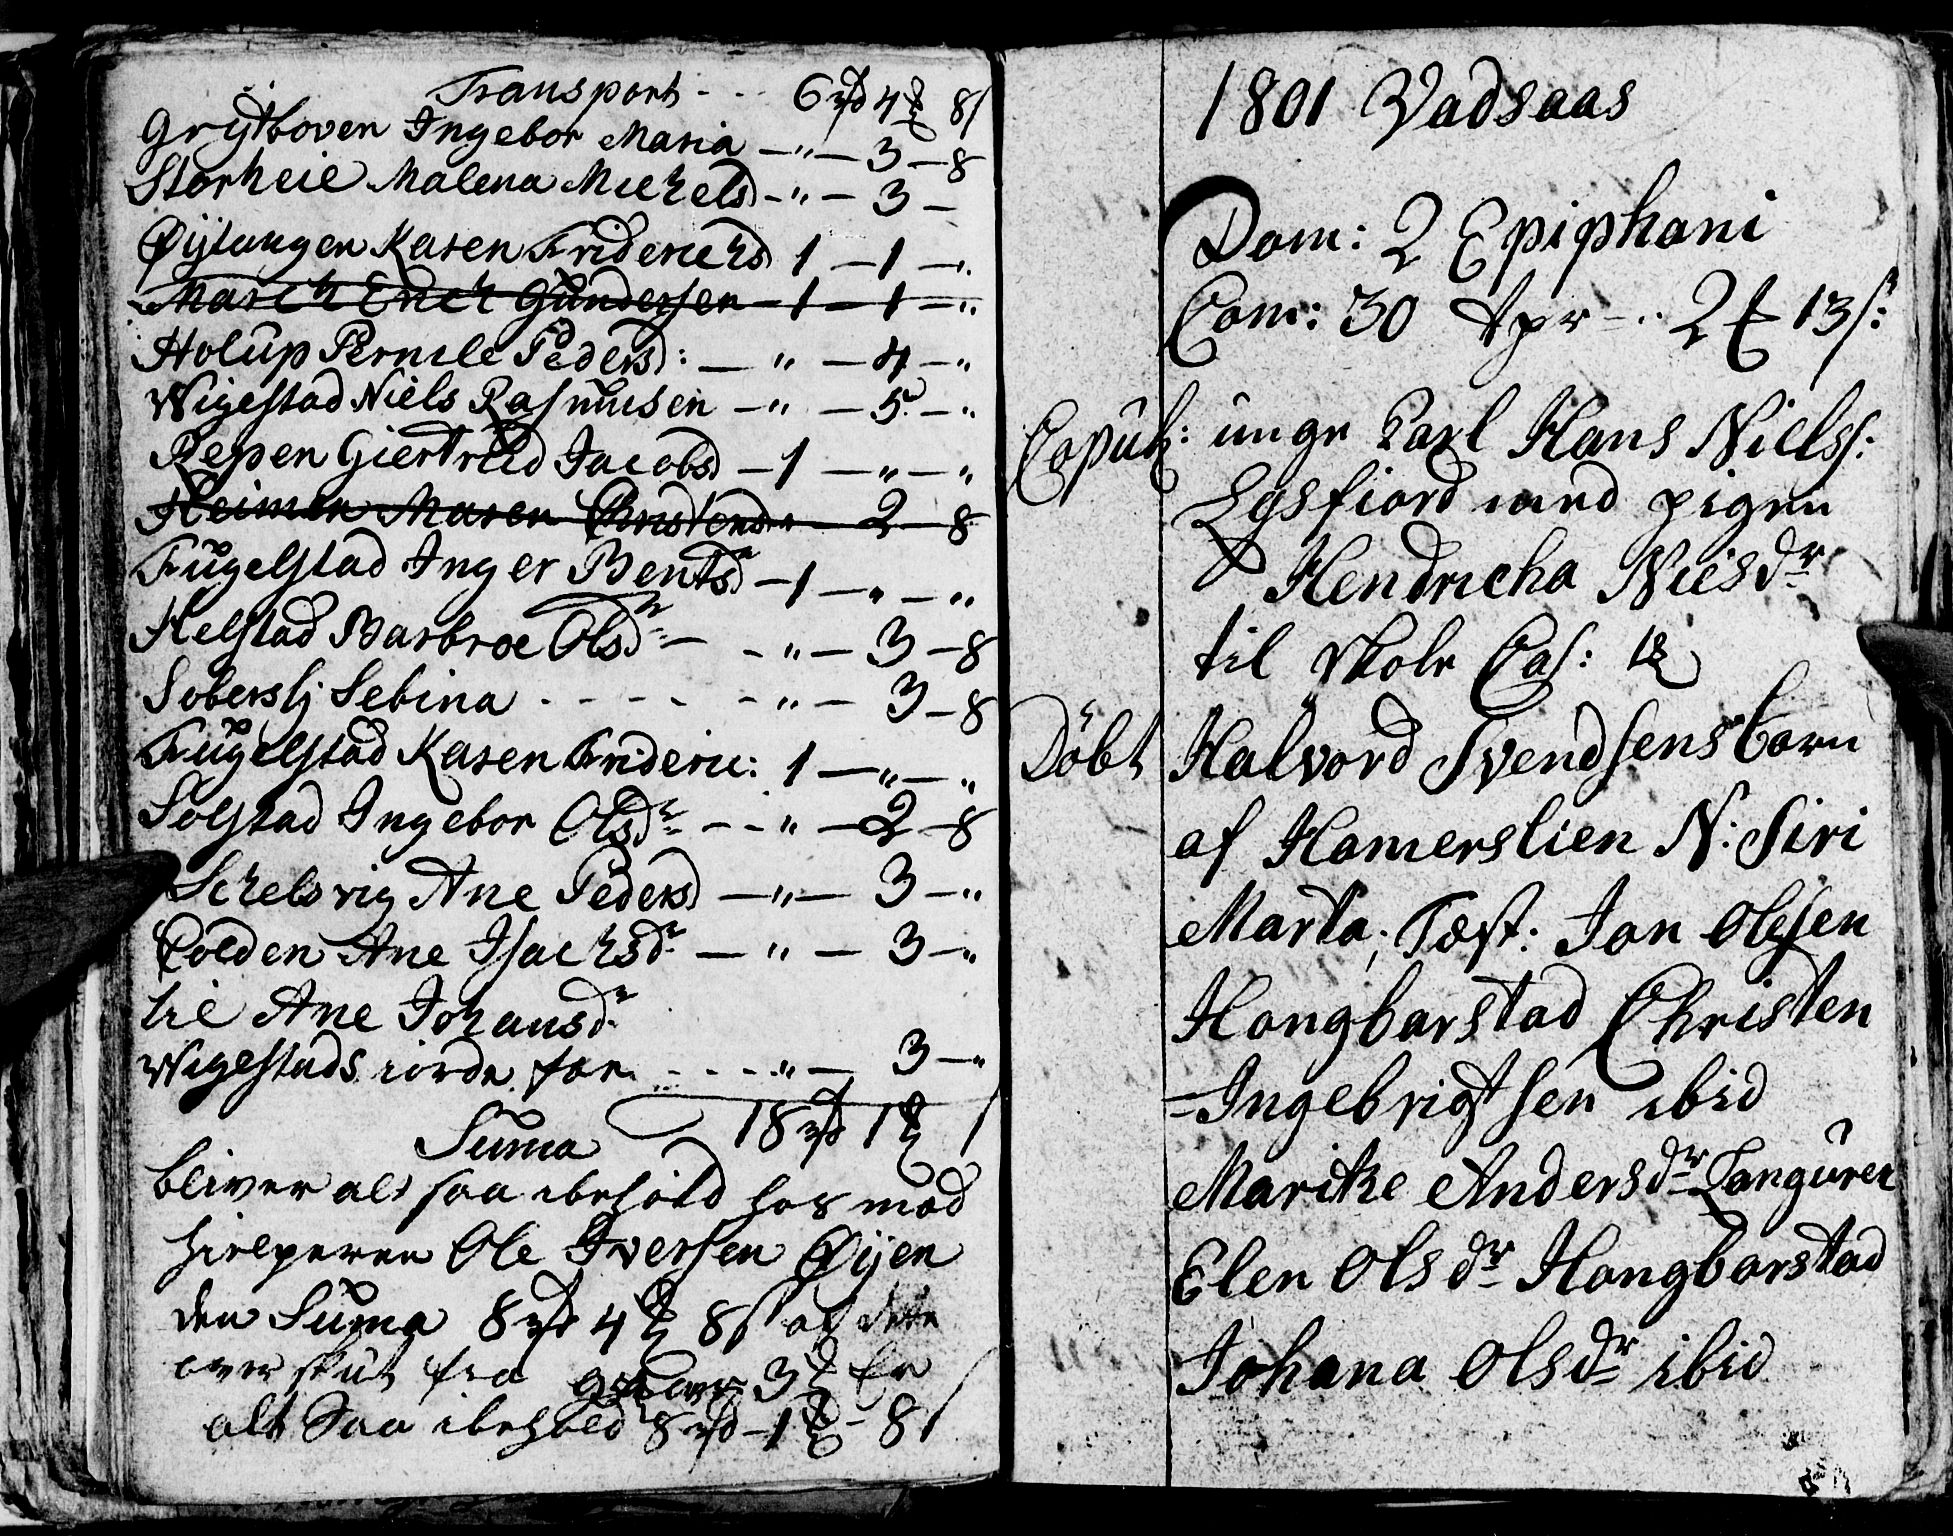 Transport - - - 6 rd 4 ℔ 8 s
Grytboven Ingebor Maria — " — 3 — 8
Storheie Malena Michelsd — " — 3 —
Øijtangen Karen Friderichsd 1 — 1 — "
March Erich Gundersen — 1 — 1 — "
Holup Pernele Pedersd: — " — 4 — "
Wigestad Niels Rasmusen — " — 5 — "
Repen Giertrud Jacobsd — 1 — " — "
Heimen Maren Christensd — " — 2 — 8
Fugelstad Inger Bentsdr — 1 — " — "
Helstad Barbroe Olsdr — - " — 3 — 8
Sobersli Sebina - - - - - " — 3 — 8
Fugelstad Karen Frideric: 1 — " — "
Solstad Ingebor Olsdr - - " — 2 — 8
Schelsvig Ane Pedersd — " — 3 — "
Colden Ane Isachsdr — " — 3 — "
lie Ane Johansdr
Wigestads iorde for - - - - " — 3 — "
Suma 18 rd 1 ℔
bliver alt saa ibehold hos mad
hielperen Ole Iversen Øijen
den Suma 8 rd 4 ℔ 8 s af
over skut fra 3 ℔ Er
alt Saa ibehold 8 rd — 1 ℔ — 8 s
1801 Vadsaas
Dom: 2 Epiphani
Com: 30 - " 2 ℔ 13 s:
Copul: unge Karl Hans Nielss:
Egsfiord med pigen
Hendricha Nielsdr
til Cas:
Döbt Halvord Svendsens barn
af Hamerslien N: Siri
Marta; Tæst: Jon Olesen
Hongbarstad Christen
=Ingebrigtsen ibid
Marike Andersdr Languren
Elen Olsdr Hongbarstad
Johana Olsdr ibid